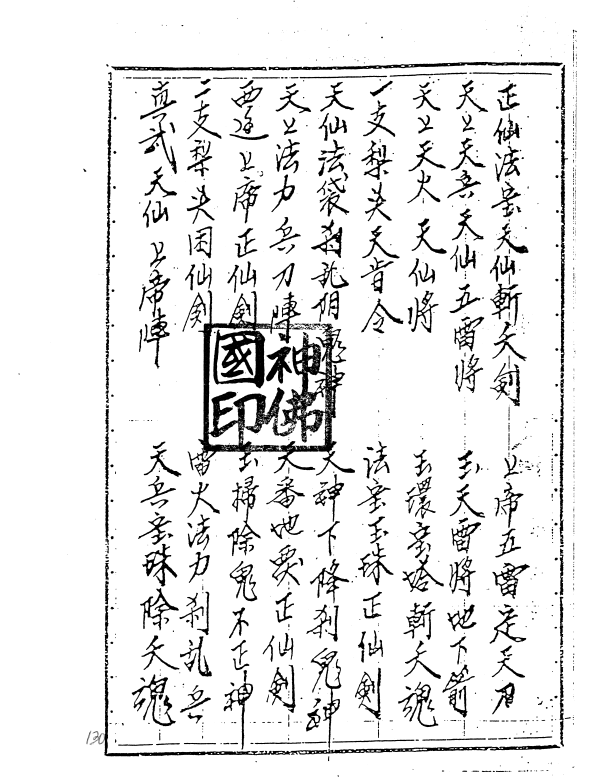 正仙法宝天仙斬夭劍
上帝五雷定天刀
天上天兵天仙五雷將
玉天雷將地下箭
天上天火天仙將
玉環宝塔斬夭魂
一支梨头天旨令
法宝玉珠正仙劍
天仙法袋刹乱阴鬼神
天神下降刹鬼神
天上法力兵刀陣
天番地覆正仙劍
西逕上帝正仙劍
玉掃除鬼不正神
二支梨头困仙劍
雷火法力刹乱兵
真武天仙上帝陣
天兵宝珠除夭魂
神佛
國印
130